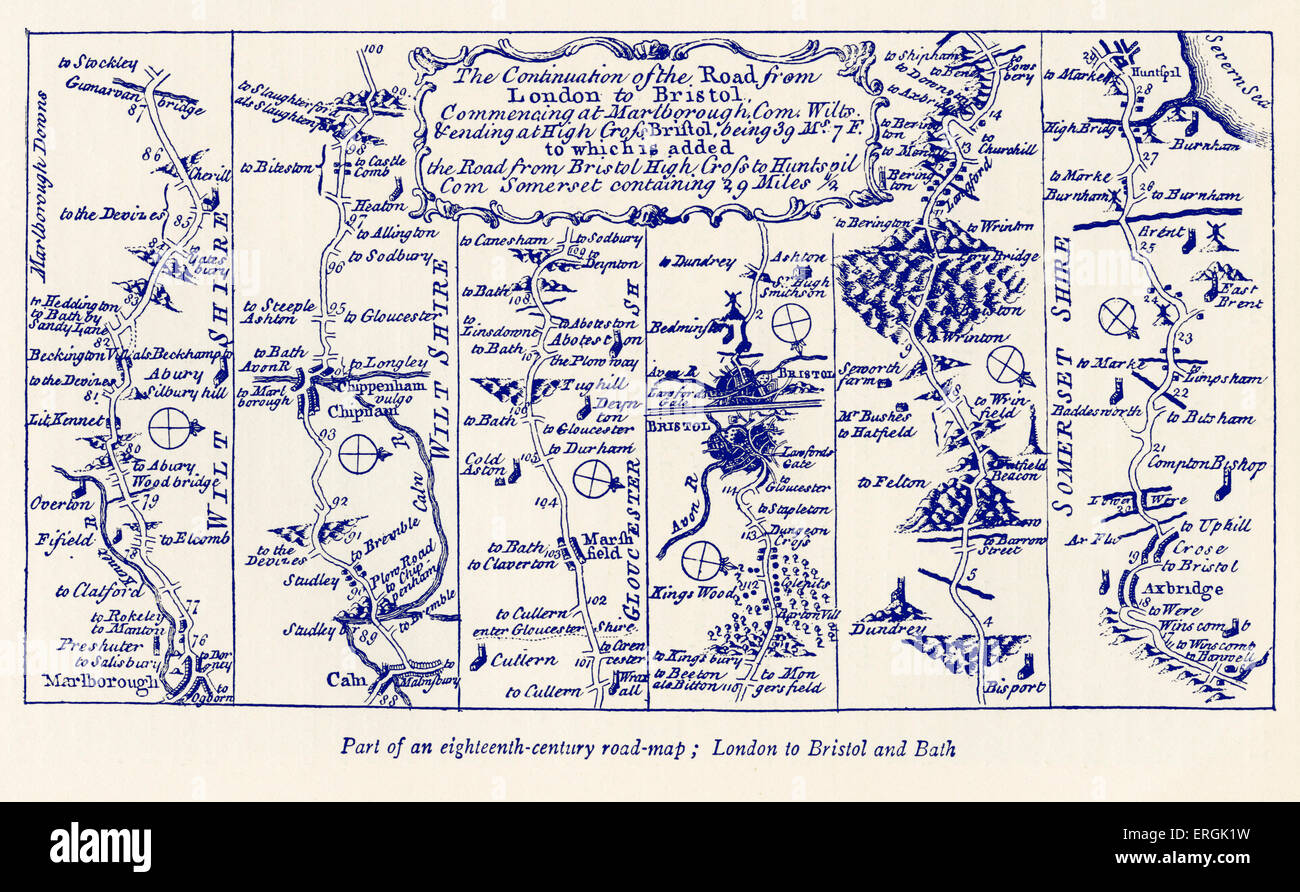 The Continuation of the Road from
London to Bristol,
Commencing at Marlborough, Com: Wilts.
& ending at High Cross Bristol, being 39 Ms. 7 F.
to which is added
the Road from Bristol High Cross to Huntspil
Com Somerset containing 29 Miles 1/2
to Stockley
Gumarvan
bridge
87
86
Cherill
Marlborough Downs
to the Devizes
WILT SHIRE
83
to Heddington
to Bath by
Sandy Lane
82
Beckington Vill als Beckhampto
to the Devizes
Abury
Silbury hill
81
Lit. Kennet
80
to Abury
Wood bridge
79
Overton
Fifield
to Elcomb
to Clatford
77
to Rokeley
to Manton
76
Preshuter
to Salisbury
Marlborough
to
Ogborn
100
99
to Slaughterford
als Slaughterford
98
to Biteston
to Castle
Comb
Heaton
97
to Allington
96
to Sodbury
WILT SHIRE
to Steeple
Ashton
95
to Gloucester
to Bath
Avon R
to Longley
to Marl
borough
Chippenham
vulgo
Chipnam
93
Calm R
92
91
to the
Devizes
to Bremble
Studley
90
Plow Road
to Chip
penham
to Bremble
Studley
89
Caln
to
Malmsbury
88
to Canesham
to Sodbury
109
to
Deynton
to Bath
108
to
Linsdowne
to Aboteston
Abotest on
to Bath
107
the Plow way
Tughill
Deyn
ton
106
to Bath
to Gloucester
to Durham
Cold
Aston
105
104
GLOUCESTER SH
to Bath
103
Marsh
field
to Claverton
102
to Cullern
enter Gloucester Shire
to Ciren
cester
Cullern
101
to Cullern
Wrax
all
to Dundrey
Ashton
Sr. Hugh
Smithson
2
Bedminster
Avon R
BRISTOL
Lanfords
Gate
BRISTOL
Lanfords
Gate
to
Gloucester
Avon R
114
to Stapleton
113
Dungeon
Cross
112
Colepits
Kings Wood
Barton Vill
111
to Kingsbury
to Beeton
als Bitton
110
to Mon
gersfield
to Shipham
to Axbridge
14
to
Churchill
13
Langford
to Berington
to Wrinton
to Wrinton
9
Seworth
farm
8
Mr. Bushes
to Hatfield
to Wrin
field
7
Beacon
to Felton
to Barrow
Street
5
4
Dundrey
Bisport
SOMERSET SHIRE
to Marke
Huntspil
28
Severn Sea
High Bridge
Burnham
27
to Marke
Burnham
26
to Burnham
Brent
25
East
Brent
24
23
to Marke
to
Limpsham
22
Baddesworth
to Bitsham
21
Compton Bishop
Lower Were
to Uphill
Ar Flu
Crose
19
to Bristol
Axbridge
18
to Were
Winscomb
to Winscomb
to Banwell
Part of an eighteenth-century road-map ; London to Bristol and Bath
alamy
a
alamy stock photo
ERGK1W
www.alamy.com